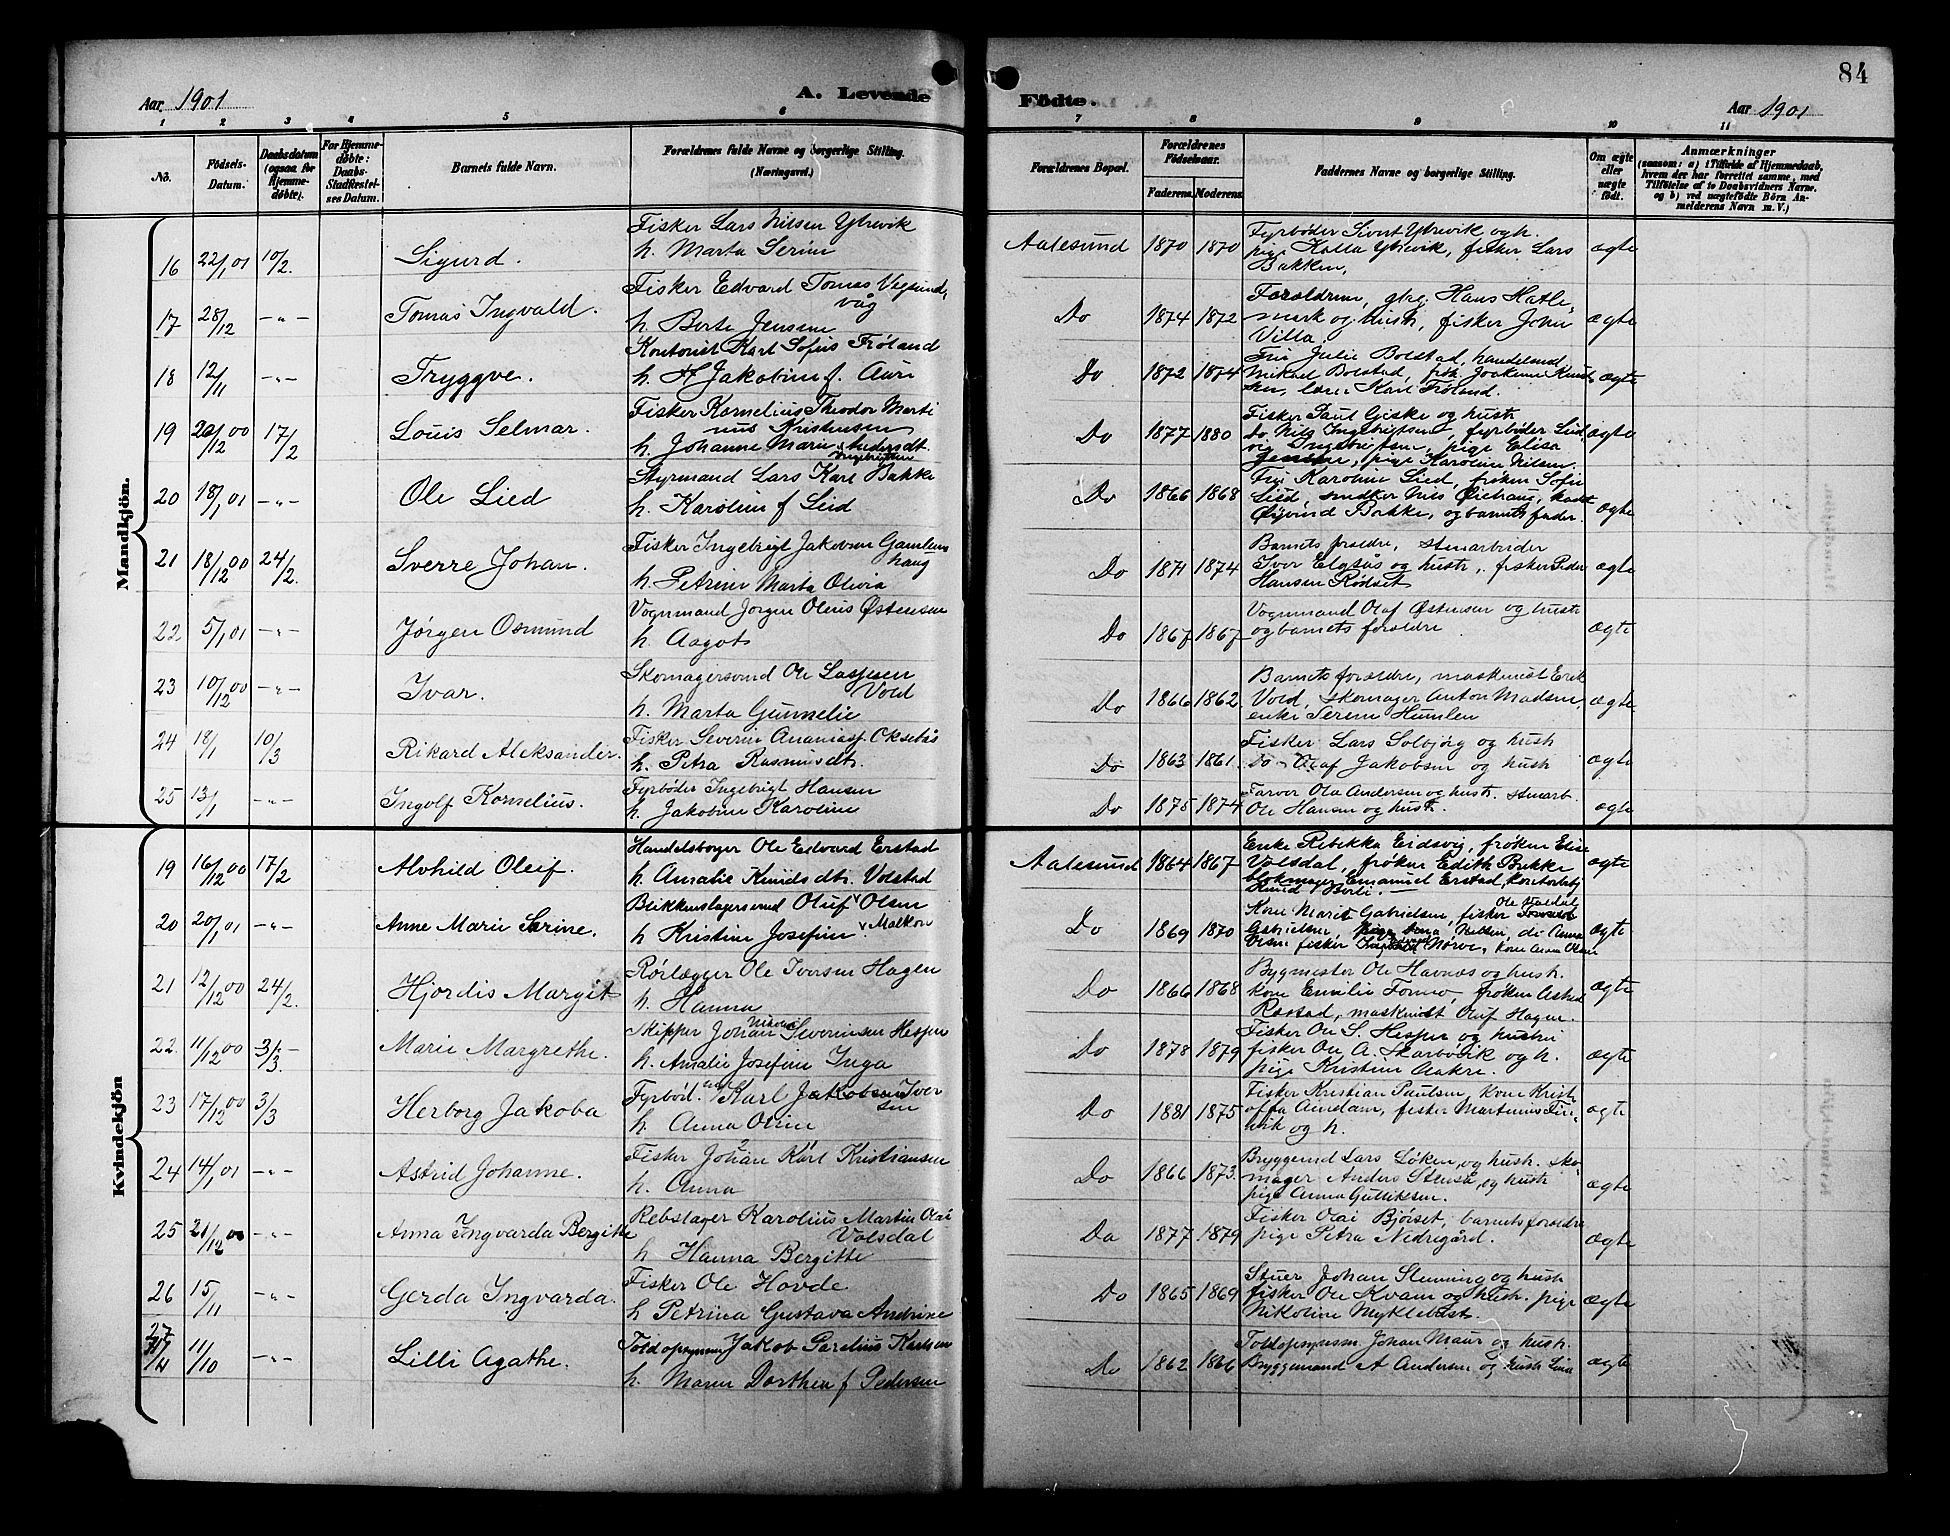 84
Aar 1901
A. Levende
Fødte.
Aar 1901
1 2 3 4 5 6 7 8 9 10 11
No.
Fødsels-
Datum.
Daabsdatum
(ogsaa for
Hjemme-
døbte).
For Hjemme-
døbte:
Daabs-
Stadfæstel-
ses Datum.
Barnets fulde Navn.
Forældrenes fulde Navne og borgerlige Stilling.
(Næringsvei.)
Forældrenes Bopæl.
Forældrenes
Fødselsaar.
Faderens. Moderens.
Faddernes Navne og borgerlige Stilling.
Om ægte
eller
uægte
født.
Anmærkninger
(saasom: a) i Tilfælde af Hjemmedaab,
hvem der har forrettet samme, med
Tilføielse af to Daabsvidners Navne,
og b) ved uægtefødte Børn An-
melderens Navn m. V.)
Mandkjön.
16 22/1 01 10/2. Sigurd. Fisker Lars Nilsen Ytrevik
h. Marta Serine
Aalesund 1870 1870 Fyrbøder Sivert Ytrevik og h.
pige Kalla Ytrevik, fisker Lars
Bakken,
ægte
17 28/12 -"- Tomas Ingvald. Fisker Edvard Tomas Vegsund-
våg
h. Berte Jensine
Do 1874 1872 Forældrene, gbr. Hans Hatle-
mark og hustr, fisker John
Villa.
ægte
18 12/11 -"- Tryggve. Kontorist Karl Sofus Frøland
h. Jakobine f. Aure
Do 1872 1874 Fru Julie Bolstad, handelsmd
Mikael Bolstad, frk. Joakime Knud-
sen, lærer Karl Frøland.
ægte
19 20/12 00 17/2 Louis Selmar. Fisker Kornelius Theodor Marti
nus Kristensen
h. Johanne Marie Andersdt.
Ingebrigtsen
Do 1877 1880 Fisker Paul Giske og hustr
Do. Nils Ingebrigtsen, fyrbøder
Ingebrigtsen, pige Elisa
Jensine, pige Karoline Nilsen.
ægte
20 18/1 01 -"- Ole Lied Styrmand Lars Karl Bakke
h. Karoline f Lied
Do 1866 1868 Fru Karoline Lied, frøken Sofie
Lied, snedker Nils
Øivind Bakke, og barnets fader.
ægte
21 18/12 00 24/2. Sverre Johan. Fisker Ingebrigt Jakobsen Gamlem
haug
h. Petrine Marta Olivia
Do 1871 1874 Barnets forældre, stenarbeider
Iver Elgsås og hustr, fisker Peder
Hansen Rødset
ægte
22 5/1 01 -"- Jørgen Osmund Vognmand Jørgen Olaus Østensen
h. Aagot
Do 1867 1867 Vognmand Olaf Østensen og hustr
og barnets forældre
ægte
23 10/12 00 -"- Ivar. Skomagersvend Ole Lassesen
Vold
h. Marta Gunnelie
Do 1866 1862 Barnets forældre, maskinist Erik
Vold, skomager Anton Madsen,
enke Serine Humlen
ægte
24 18/1 10/3 Rikard Aleksander. Fisker Severin Ananiasf. Oksebås
h. Petra Rasmusdt.
Do 1863 1861 Fisker Lars Solbjørg og hustr
Do Olaf Jakobsen og hustr
ægte
25 13/1 -"- Ingolf Kornelius. Fyrbøder Ingebrigt Hansen
h. Jakobine Karoline
Do 1875 1874 Farver Ola Andersen og hustr. stenarb.
Ole Hansen og hustr.
ægte
Kvindekjön
19 16/12 00 17/2 Alvhild Oleif. Handelsborger Ole Edvard Erstad
h. Amalie Knudsdtr. Volstad
Aalesund 1864 1867 Enke Rebekka Eidsvig, frøken Elise
Volsdal, frøken Edith Brekke
blokmager Emanuel Erstad,
Knud
ægte
20 20/1 01 -"- Anne Marie Serine. Blikkenslagersvend Oluf Olsen
Malkon
h Kristine Josefine
Do 1869 1870 Kone Marit Gabrielsen, fisker Ole Valdal
Gabrielsen, Nilsen, do Anna
Olsen fisker Nørve, kone Anna Olsen
ægte
21 12/12 00 24/2. Hjordis Margit Rørlægger Ole Iversen Hagen
h. Hanna
Do 1866 1868 Bygmester Ole Havnæs og hustr.
kone Emilie, frøken Astrid
Røstad, maskinist Oluf Hagen.
ægte
22. 11/12 00 3/3. Marie Margrethe. Skipper Johan Severinsen Hessen
h. Amalie Josefine Inga
Do 1878 1879 Fisker Ole S. Hessen og hustru
fisker Ole A. Skarbøvik og h.
pige Kristine Aakre.
ægte
23 17/12 00 3/3 Herborg Jakoba Fyrbød. Karl Jakobsen Iver
sen
h. Anna Olsen
Do 1881 1875 Fisker Kristian Paulsen, kone Krist-
offa Amdam, fisker Martinus
vik og h.
ægte
24 14/1 01 -"- Astrid Johanne. Fisker Johan Karl Kristiansen
h. Anna
Do 1866 1873. Bryggemd Lars Løken, og hustr. sko-
mager Anders Stenså, og hustr
pige Anna Gulliksen.
ægte
25 21/12 00 -"- Anna Ingvarda Bergitte Rebslager Karolius Martin Olai
Volsdal
h Hanna Bergitte
Do 1877 1879 Fisker Olai Bjørset, barnets forældre
pige Petra Nedregård.
ægte
26 15/11 -"- Gerda Ingvarda. Fisker Ole Hovde
h Petrina Gustava Andrine
Do 1865 1869 Stuer Johan Slinning og hustr
fisker Ole Kvam og hustr. pige
Nikoline Myklebust.
ægte
27 11/10 -"- Lilli Agathe. Toldopsynsm Jakob Parelius Karlsen
h. Maren Dorthea f Pedersen
Do 1862 1866 Toldopsynsm Johan Maur og hustr.
Bryggemand A Andersen og hustr Lina
ægte